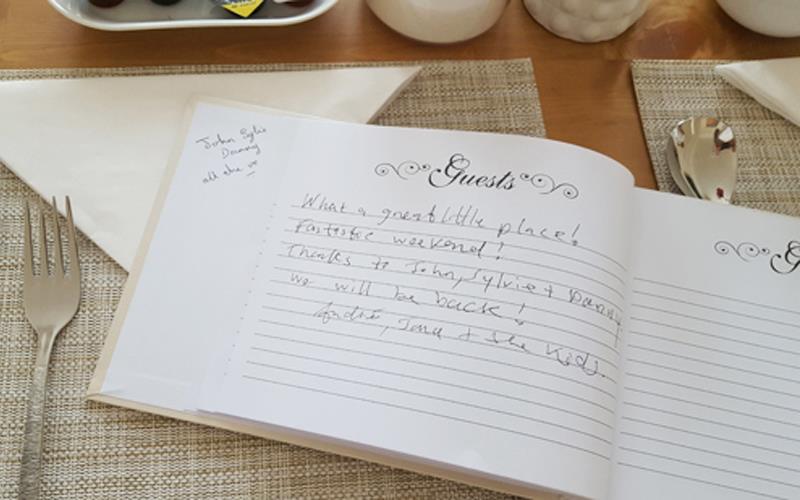 John Sylvie
Danny
all the
Guests
What a great little place!
Fantastic weekend!
Thanks to John, Sylvie + Danny
we will be back!
André, + the kids.
G